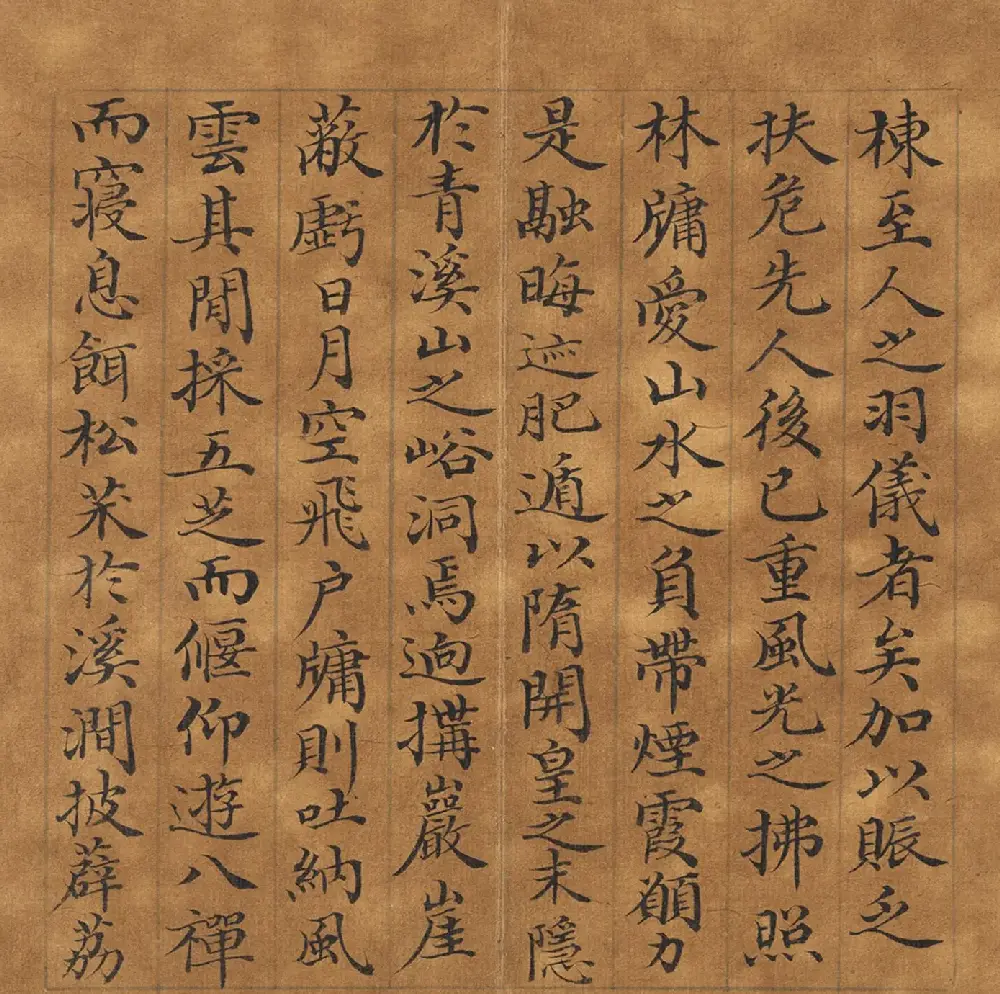 棟至人之羽儀者矣加以賑乏
扶危先人後已重風光之拂照
林牗愛山水之負帶煙霞願力
是融晦迹肥遁以隋開皇之末隱
於青溪山之峪洞焉逈搆巖崖
蔽虧日月空飛户牗則吐納風
雲其閒採五芝而偃仰遊八禪
而寑息餌松茶於溪澗披薜荔